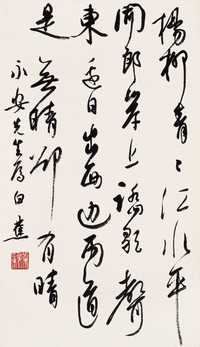 楊柳青〻江水平
聞郎岸上踏歌聲
東邊日出西邊雨道
是無晴卻有晴
永安先生屬白蕉